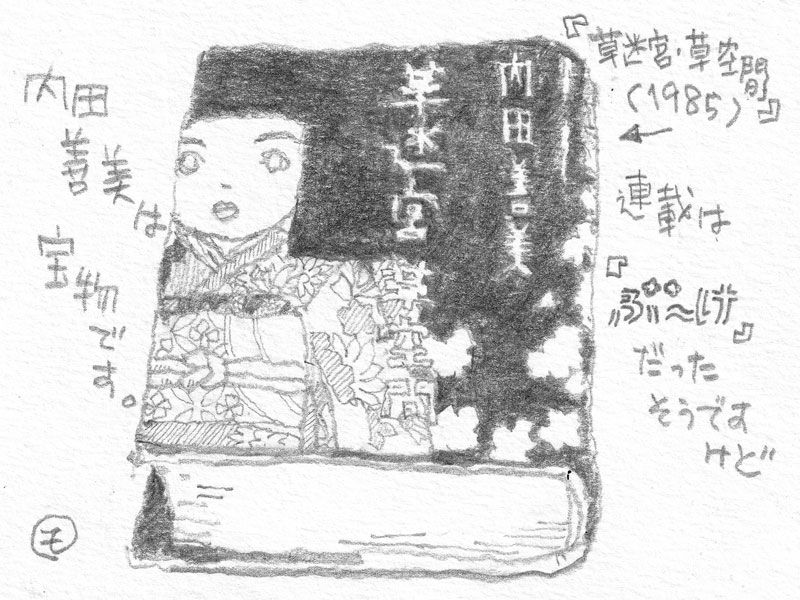 『草迷宮・草空間』
(1985)
←
連載は
『ぶ〜け』
だった
そうです
けど
内田
善美は
宝物
です。
草迷宮
草空間
内田善美
モ